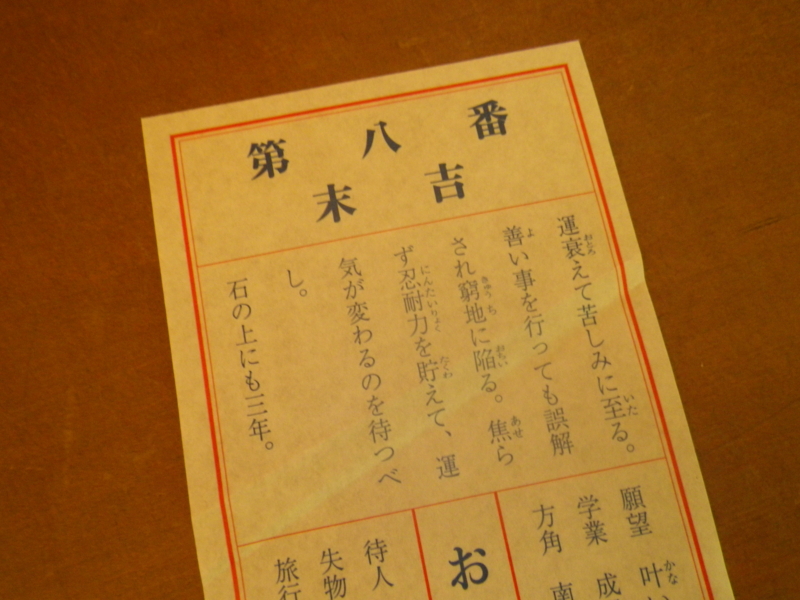 第八番
末吉
運衰えて苦しみに至る。
善い事を行っても誤解
され窮地に陥る。焦ら
ず忍耐力を貯えて、運
気が変わるのを待つべ
し。
石の上にも三年。
願望 叶
学業 成
方角 南
お
待人
失物
旅行